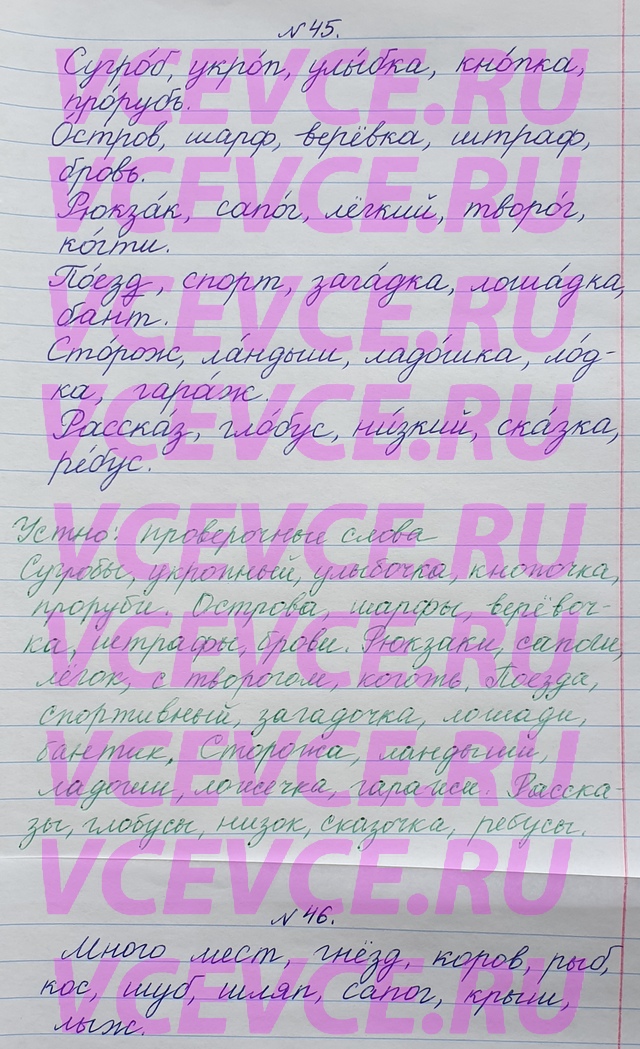 № 45.
Сугро́б, укро́п, улы́бка, кно́пка,
про́рубь.
О́стров, шарф, верёвка, штраф,
бровь.
Рюкза́к, сапо́г, лёгкий, творо́г,
ко́гти.
По́езд, спорт, зага́дка, лоша́дка,
бант.
Сто́рож, ла́ндыш, ладо́шка, ло́д-
ка, гара́ж.
Расска́з, гло́бус, ни́зкий, ска́зка,
ре́бус.
Устно: проверочные слова
Сугробы, укропный, улыбочка, кнопочка,
проруби. Острова, шарфы, верёвоч-
ка, штрафы, брови. Рюкзаки, сапоги,
лёгок, с творогом, коготь. Поезда,
спортивный, загадочка, лошади,
бантик. Сторожа, ландыши,
ладоши, гаражи. Расска-
зы, глобусы, низок, сказочка, ребусы.
№ 46.
Много мест, гнёзд, коров, рыб,
кос, шуб, шляп, сапог, крыш,
лыж.
VCEVCE.RU
VCEVCE.RU
VCEVCE.RU
VCEVCE.RU
VCEVCE.RU
VCEVCE.RU
VCEVCE.RU
VCEVCE.RU
VCEVCE.RU